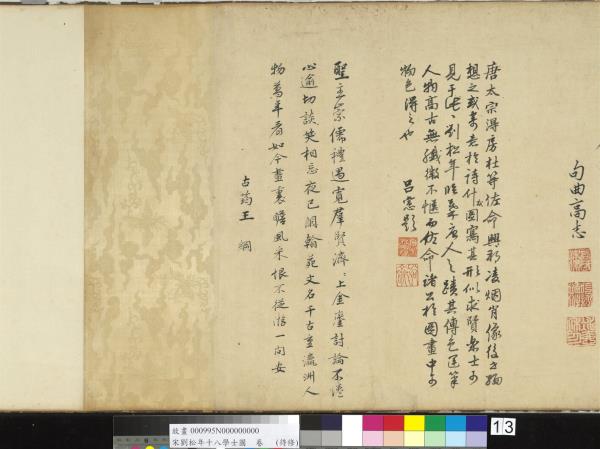 句曲高志
唐太宗得房杜等佐命興邦凌烟肖像後之緬
想之或考於詩什或圖寫其形似求賢眾士可
見于此劉松年臨摹唐人之蹟其傳色運筆
人物高古無纖微不愜而佐命諸公於圖畫中可
物色得之也
呂憲題
聖主崇儒禮遇寬群賢濟濟上金鑾討論不倦
心逾切談笑相忘夜已闌翰苑文名千古重瀛洲人
物萬年看如今畫裏瞻風采恨不從游一問安
古筠王綱
故畫 000995N000000000
宋劉松年十八學士圖 卷 (待修)
13